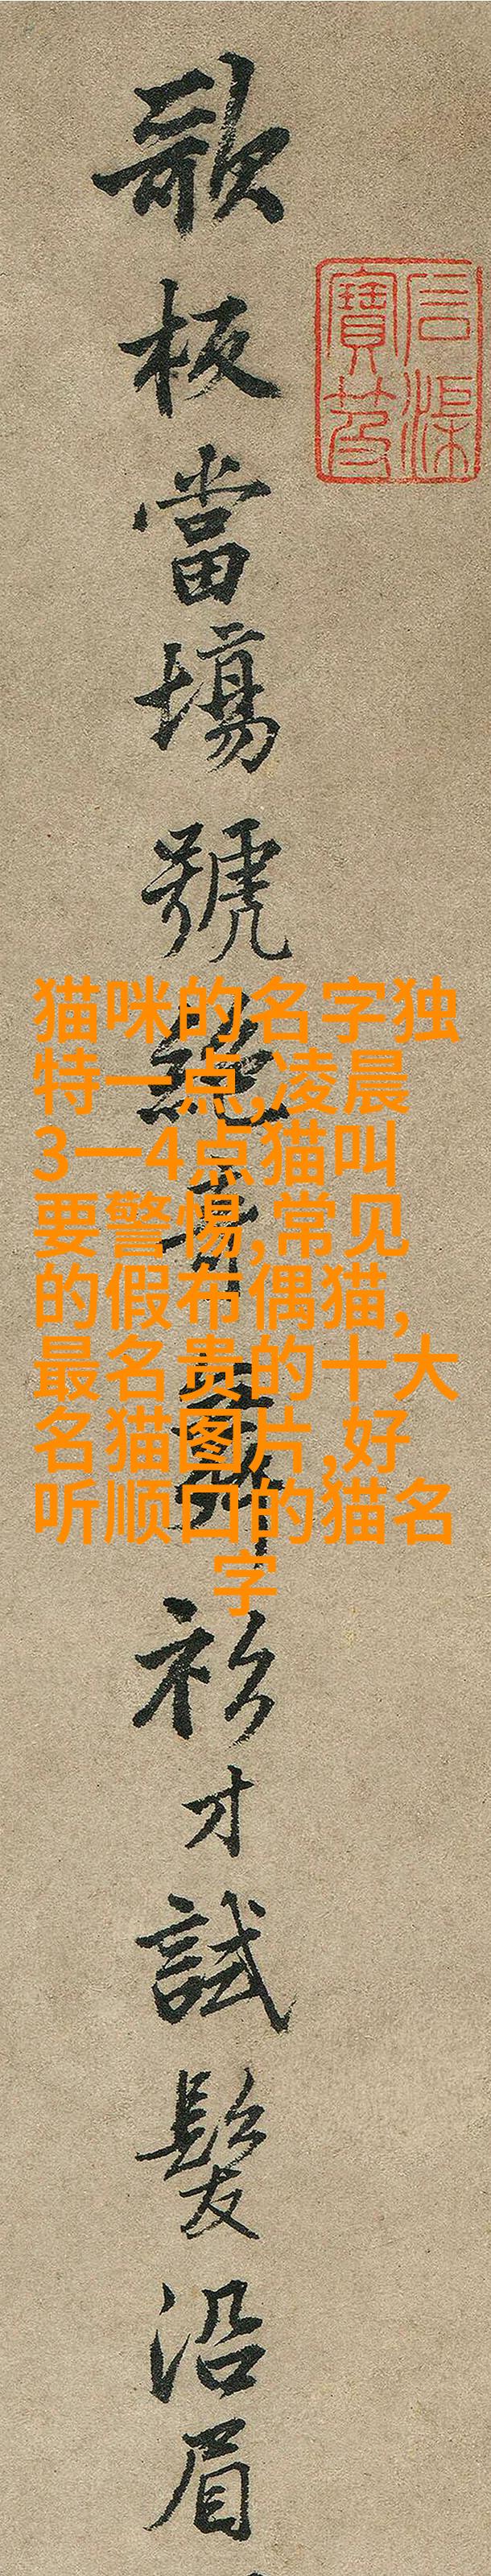 石渠
寶笈
歌板當場號絕奇舞衫才試髮沿眉
猫咪的名字独
特一点,凌晨
3一4点猫叫
要警惕,常见
的假布偶猫,
最名贵的十大
名猫图片,好
听顺口的猫名
字